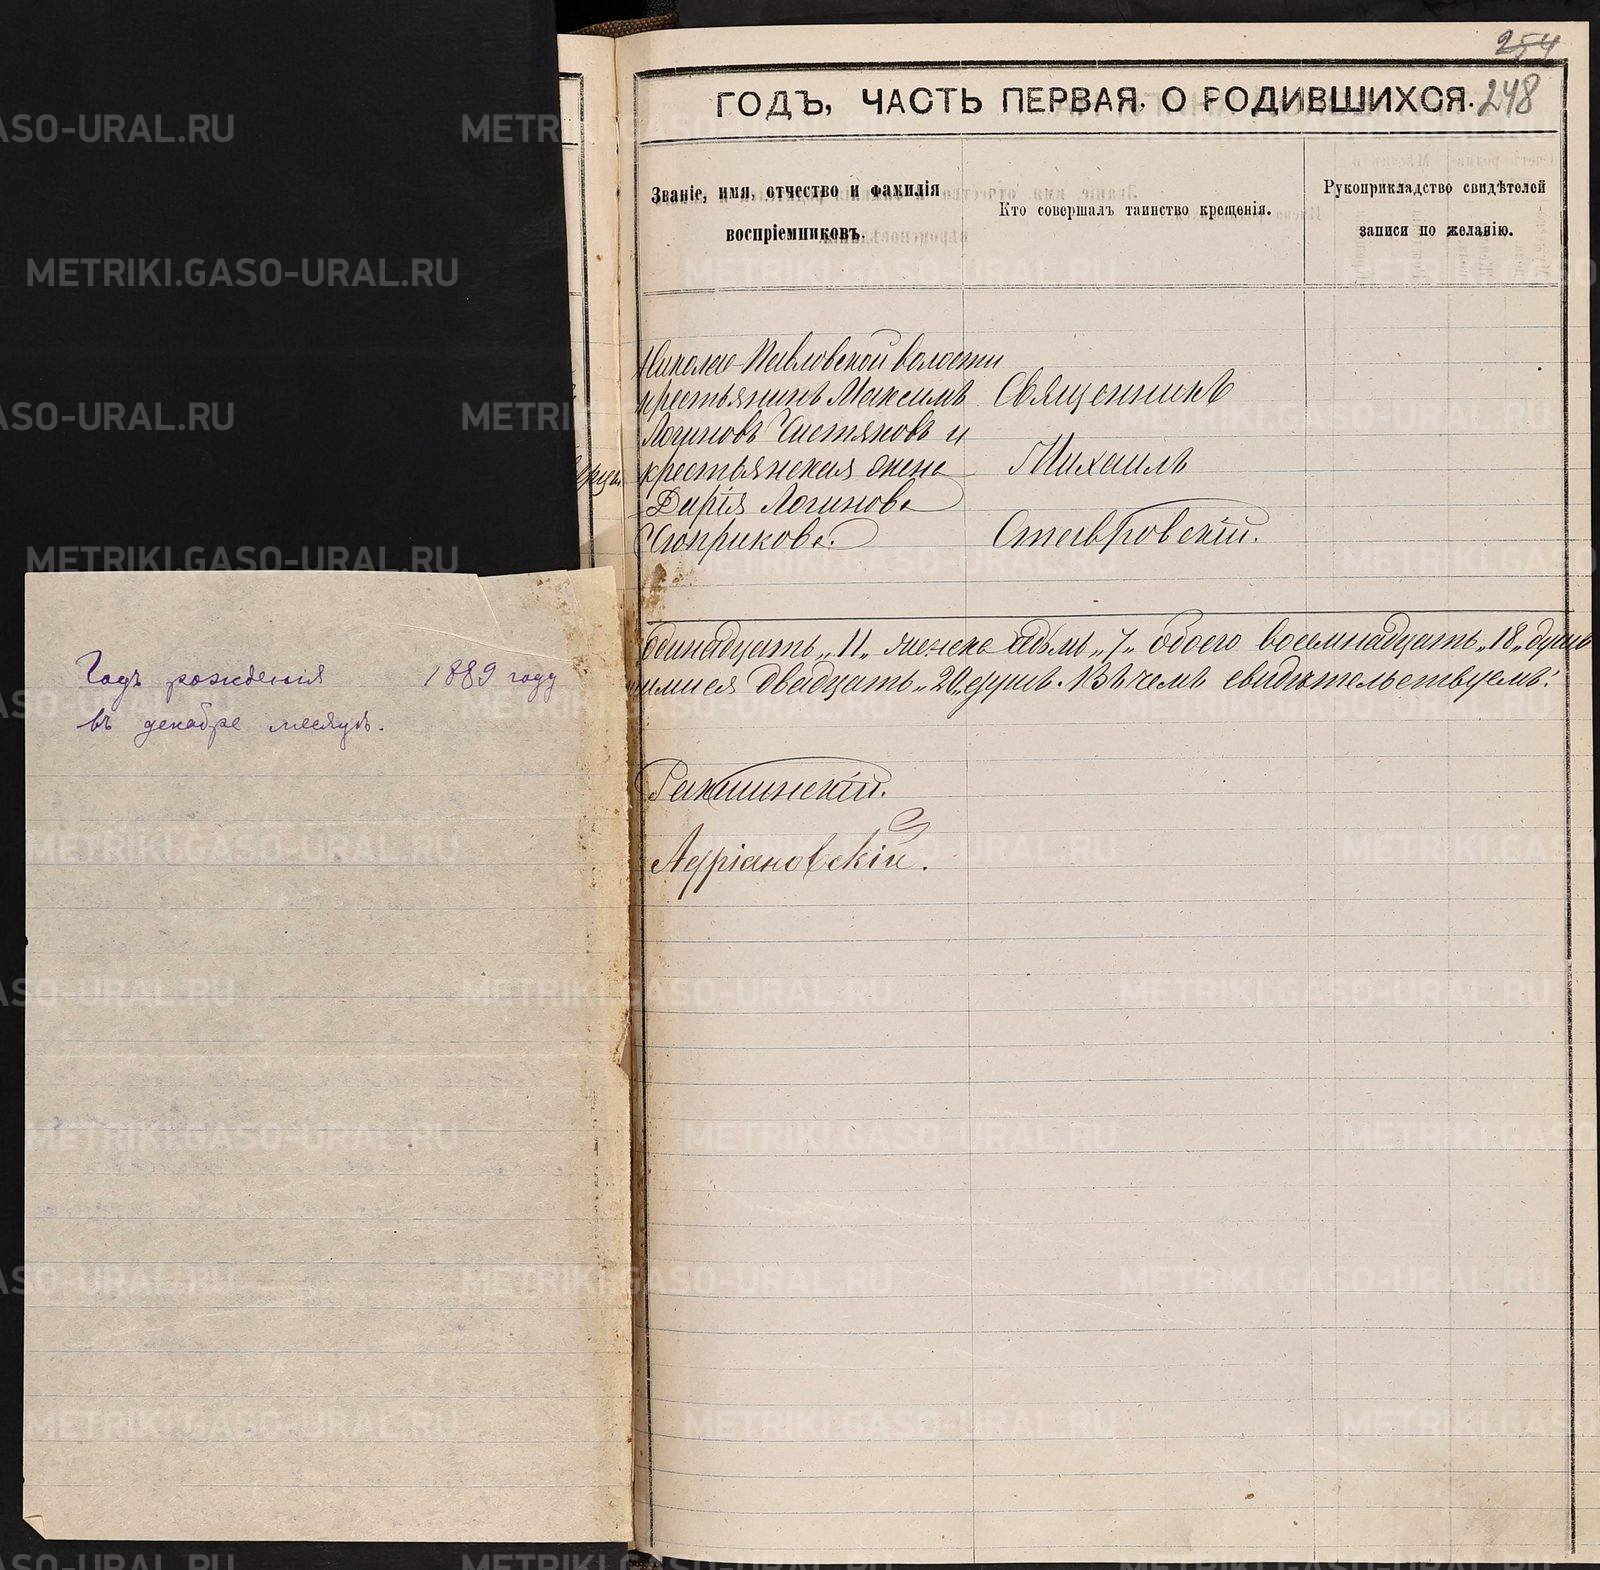 254
ГОДЪ, ЧАСТЬ ПЕРВАЯ, О РОДИВШИХСЯ.
248
Званіе, имя, отчество и фамилія
воспріемниковъ.
Кто совершалъ таинство крещенія.
Рукоприкладство свидѣтелей
записи по желанію.
Николае-Павловской волости
крестьянинъ Максимъ
Логиновъ Чистяковъ и
крестьянская жена
Дарія Логинова
Чюприкова.
Священникъ
Михаилъ
Ставровскій.
одинадцать „11„ женска седьмь „7„ обоего восемнадцать „18„ душъ
двадцать „20„ душъ. Въ чемъ свидѣтельствуемъ:
Адріановскій.
Годъ рожденія 1889 году
въ декабре месяце.
METRIKI.GASO-URAL.RU